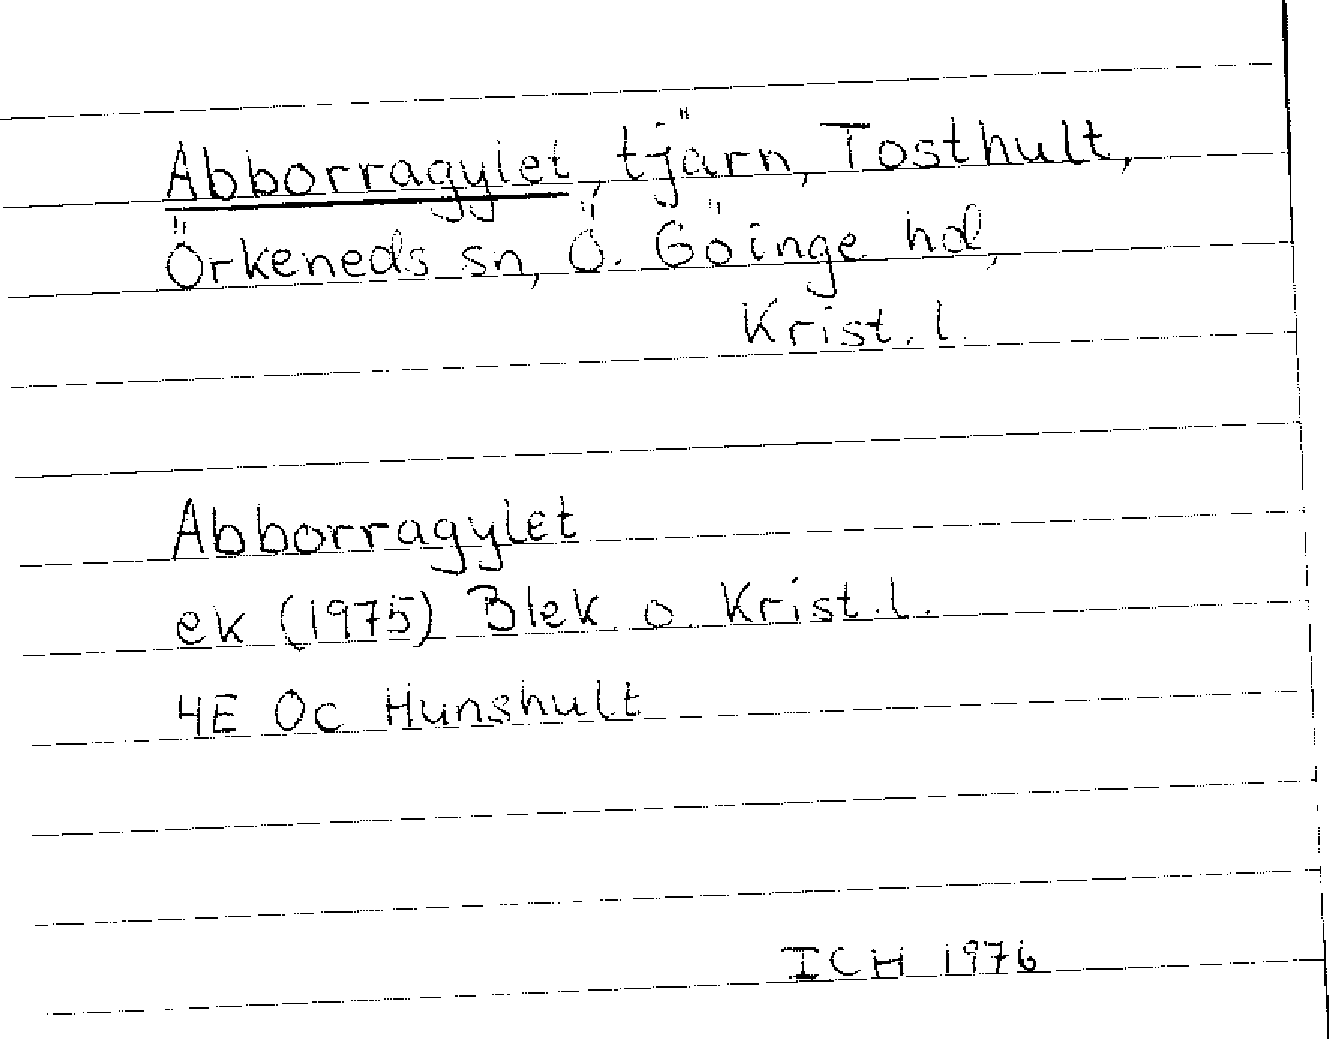 Abborragylet, tjärn, Tosthult,
Örkeneds sn, Ö. Göinge hd,
Krist. l.
Abborragylet
ek (1975) Blek o Krist. l.
4E 0c Hunshult
ICH 1976